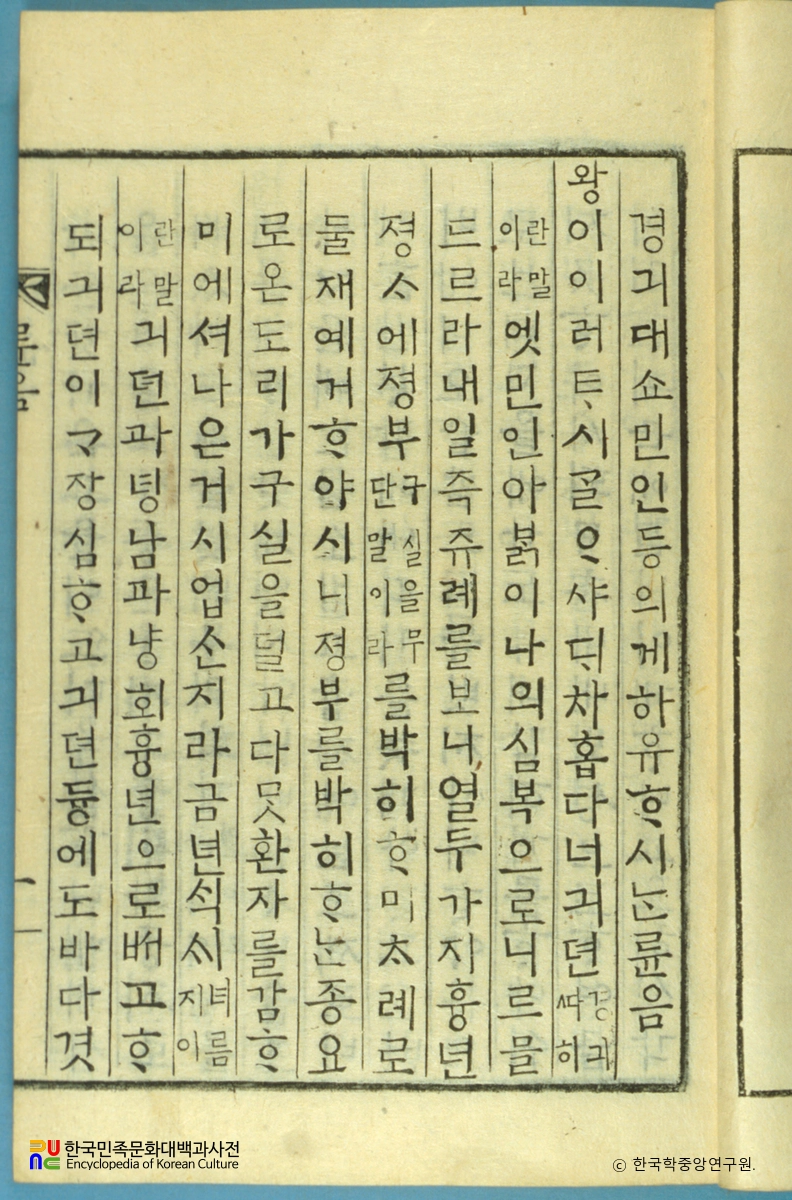 경긔대쇼민인등의게하유ᄒᆞ시ᄂᆞᆫ륜음
왕이이러ᄐᆞ시ᄀᆞᆯᄋᆞ샤ᄃᆡ차홉다너긔뎐경긔ᄯᅡ히
란말이라엣민인아붉이나의심복으로니르믈
드르라내일즉쥬례를보니열두가지흉년
졍ᄉᆞ에졍부구실을무단말이라를박히ᄒᆞ미ᄎᆞ례로
둘재예거ᄒᆞ야시니졍부를박히ᄒᆞᄂᆞᆫ종요
로온도리가구실을덜고다ᄆᆞᆺ환자를감ᄒᆞ
미에셔나은거시업ᄉᆞᆫ지라금년ᄉᆡᆨᄉᆡ녀름지이
란말이라긔뎐과령남과냥회흉년으로ᄡᅥ고ᄒᆞ
되긔뎐이ᄀᆞ장심ᄒᆞ고긔뎐듕에도바다겻
륜음
一
한국민족문화대백과사전
Encyclopedia of Korean Culture
ⓒ 한국학중앙연구원.